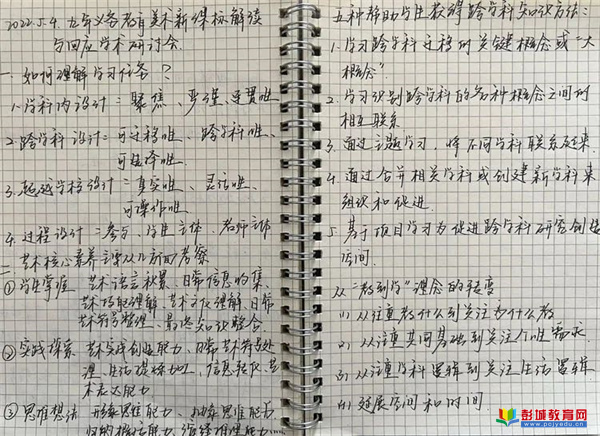 2022.5.4. 九年义务教育美术新课标解读
与回应学术研讨会.
一. 如何理解学习任务?
1. 学科内设计: 聚焦、严谨、连贯性
2. 跨学科设计: 可迁移性、跨学科性、
可选择性
3. 超越学校设计: 真实性、灵活性、
可操作性
4. 过程设计: 参与、学生主体、老师主体
二. 艺术核心素养主要从几方面考察
① 学生掌握 艺术语言积累、日常信息收集、
艺术技能理解、艺术文化理解、日常
艺术符号整理、最终知识整合.
② 实践探索 艺术实践创造能力、日常艺术符号处
理、生活 信息转化、艺
术表达能力
③ 思维想法 形象思维能力、抽象思维能力、
五种帮助学生获得跨学科知识方法:
1. 学习跨学科迁移的关键概念或“大
概念”.
2. 学习识别跨学科的各种概念之间的
相互联系
3. 通过主题学习, 将不同学科联系起来.
4. 通过合并相关学科或创建新学科来
组识和促进.
5. 基于项目学习为促进跨学科研究创造
空间.
从“教到学”理念的转变
(1) 从注重教什么到关注为什么教
(2) 从注重共同基础到关注个性需求.
(3) 从注重学科逻辑到关注生活逻辑
(4) 拓展空间和时间.
彭城教育网
www.pcjyedu.cn